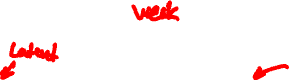 week
Latent